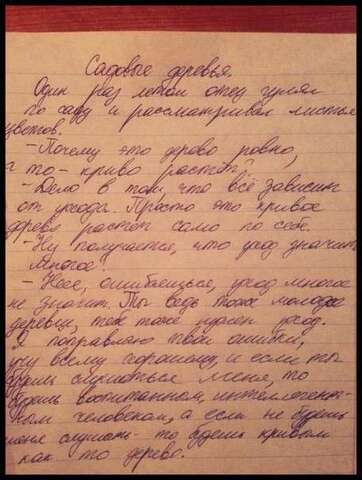 Садовые деревья.
Один раз летом отец гулял
по саду и рассматривал листья
цветов.
- Почему это дерево ровно,
а то - криво растёт?
- Дело в том, что всё зависит
от ухода. Просто это кривое
дерево растёт само по себе.
- Ну получается, что уход значит
многое.
- Нее, ошибаешься, уход многое
не значит. Ты ведь тоже молодое
деревце, тебе тоже нужен уход.
Я поправляю твои ошибки,
учу всему хорошему, и если ты
будешь слушаться меня, то
будешь воспитанным, интеллигент-
ным человеком, а если не будешь
меня слушать - то будешь кривым
как то дерево.